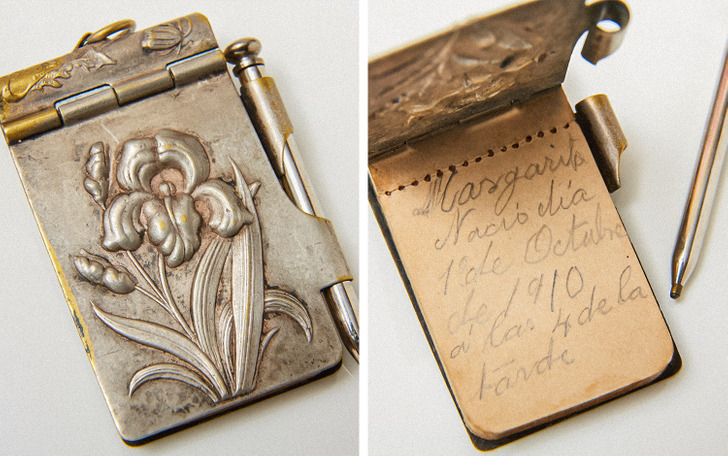 Margarita
Nació día
1º de Octubre
de 1910
a las 4 de la
tarde